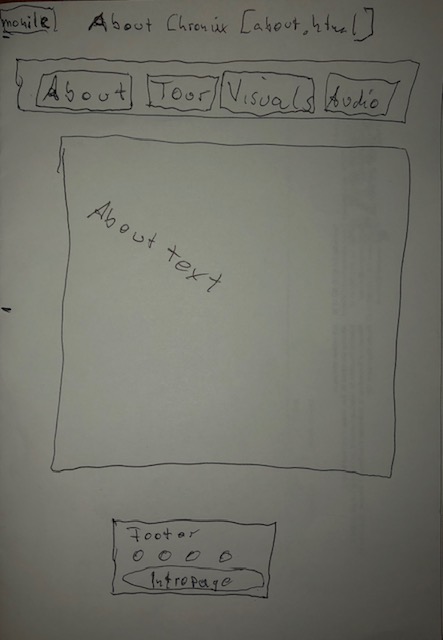 mobile About Chronix [about.html]
About Tour Visuals Audio
About text
Footer
Intropage